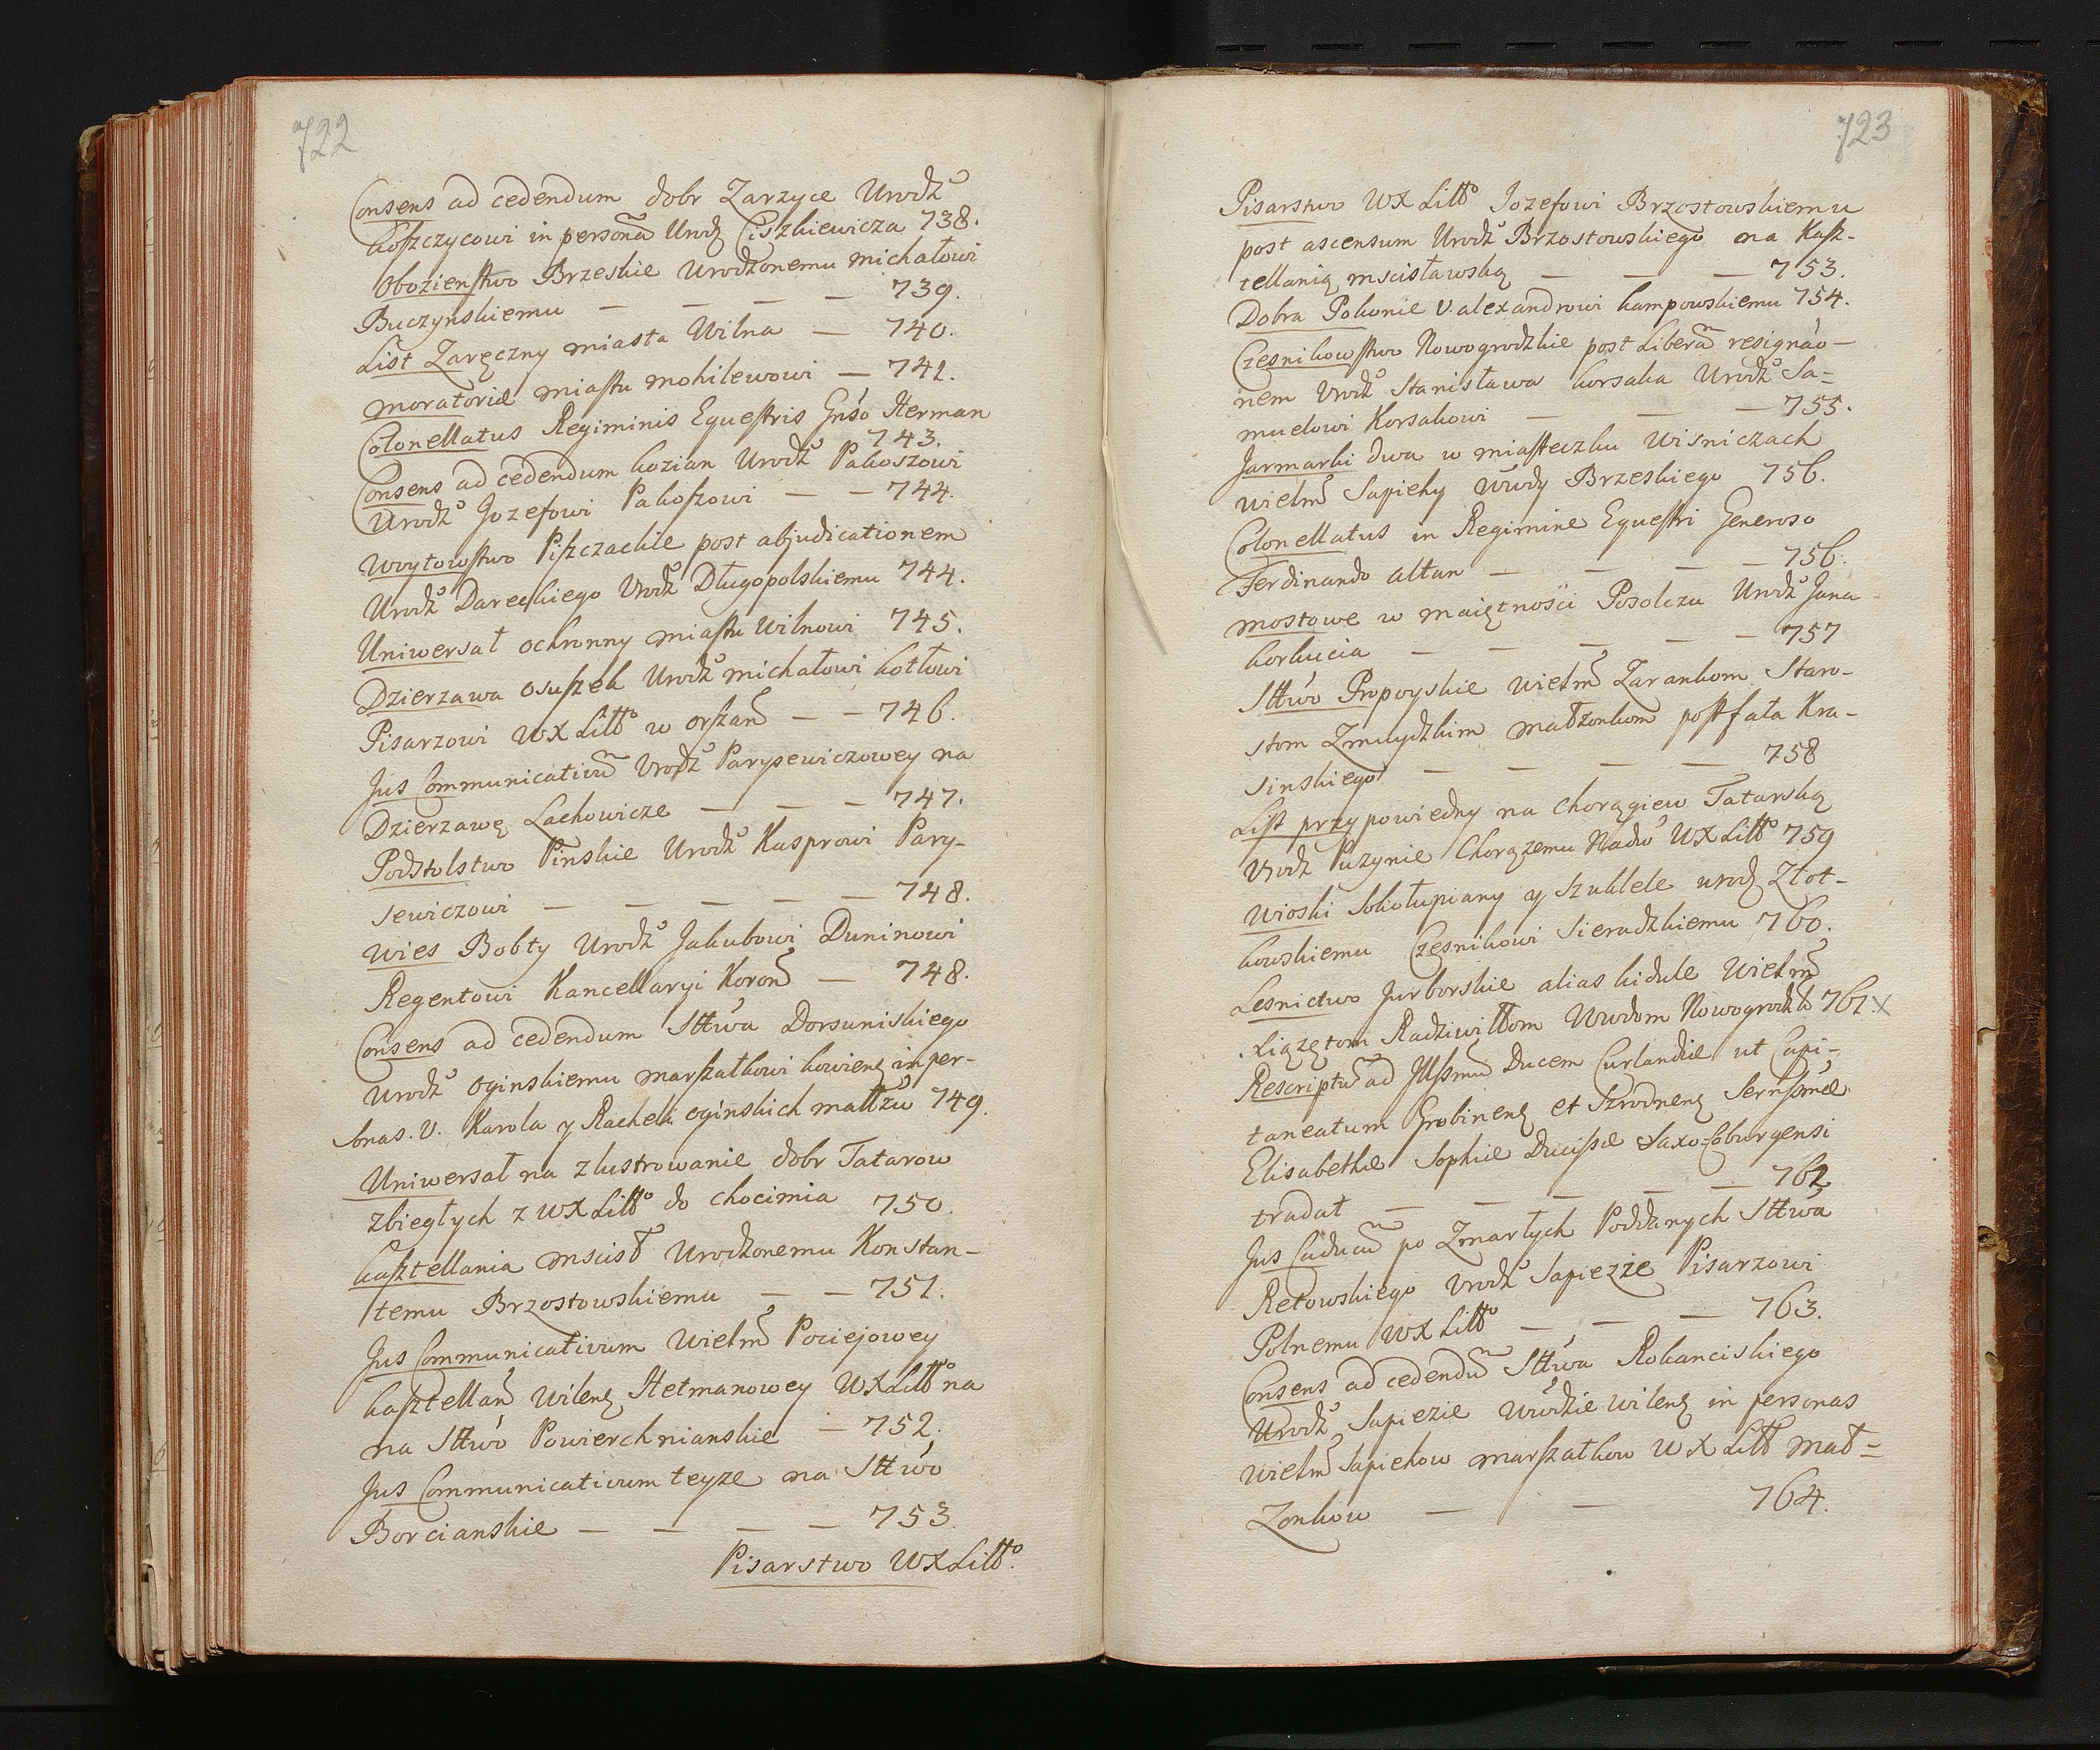 722
Consens ad cedendum dobr Zarzyce Urodź
Koszczycowi in personam Urodz Ciszkiewicza 738.
Obozienstwo Brzeskie Urodzonemu Michałowi
Buczynskiemu — — — — 739.
List Zaręczny miasta Wilna — 740.
Moratoriæ miastu Mohilewowi — 742.
Colonellatus Regiminis Equestris Gnso Herman
743.
Consens ad cedendum Kozian Urodź Pakoszowi
Urodź Jozefowi Pakoszowi — — 744.
Woytowstwo Piszczackie post abjudicationem
Urodź Dareckiego Urodź Długopolskiemu 744.
Uniwersał ochronny miastu Wilnowi 745.
Dzierzawa Osuszek Urodź Michałowi Kotłowi
Pisarzowi WX Litt° w Orszań — — 746.
Jus Communicativũ Urodź Parysewiczowey na
Dzierzawę Lachowicze — — — 747.
Podstolstwo Pinskie Urodź Kasprowi Pary-
sewiczowi — — — — — 748.
Wies Bobty Urodź Jakubowi Duninowi
Regentowi Kancellaryi Koroń — 748.
Consens ad cedendum Sttwa Dorsuniskiego
Urodź Oginskiemu Marszałkowi Kowieng in per-
sonas. U. Karola y Racheli Oginskich Małłzũ 749.
Uniwersał na zlustrowanie dobr Tatarow
zbiegłych z WX Litt° do Chocimia 750.
Kasztellania Mscisł Urodzonemu Konstan-
temu Brzostowskiemu — — 751.
Jus Communicativum Wielm Pociejowey
Kasztellań Wileng Hetmanowey WX Litt° na
na Sttwo Powierchnianskie — 752.
Jus Communicativum teyze na Sttwo
Borcianskie — — — — 753.
Pisarstwo WX Litt°.
723
Pisarstwo WX Litt° Jozefowi Brzostowskiemu
post ascensum Urodź Brzostowskiego na Kasz-
tellanią Mscisławską — — — 753.
Dobra Pokonie U. Alexandrowi Kampowskiemu 754.
Czesnikowstwo Nowogrodzkie post Liberam resignáo-
nem Urodź Stanisława Korsaka Urodź Sa-
muelowi Korsakowi — — — 755.
Jarmarki dwa w miasteczku Wisniczach
Wielm Sapiehy Wwdy Brzeskiego 756.
Colonellatus in Regimine Equestri Generoso
Ferdinando Altan — — — — 756.
Mostowe w maiętności Posolczu Urodź Jana
Korkucia — — — — — 757
Sttwo Propoyskie Wielm Zarankom Staro-
stom Zmuydzkim Małżonkom post fata Kra-
sinskiego — — — — 758
List przypowiedny na Chorągiew Tatarską
Urodz Puzynie Chorązemu Nadw WX Litt° 759
Wioski Sokołupiany y Szuklele Urodz Złot-
kowskiemu Czesnikowi Sieradzkiemu 760.
Lesnictwo Jurborskie alias Kidule Wielm
Xiązętom Radziwiłłom Wwdom Nowogrodzk 761. X
Rescriptũ ad Illssmũ Ducem Curlandiæ ut Capi-
taneatum Grobineng et Szrodneng Sernssmæ
Elisabethæ Sophiæ Ducissæ Saxo-Coburgensi
tradat — — — — — 762
Jus Caducũ po Zmarłych Poddanych Sttwa
Retowskiego Urodź Sapiezie Pisarzowi
Polnemu WX Litt° — — — 763.
Consens ad cedendũ Sttwa Rokanciskiego
Urodź Sapiezie Wwdzie Wileng in personas
Wielm Sapiehow Marszałkow WX Litt Mał-
Zonkow — — 764.